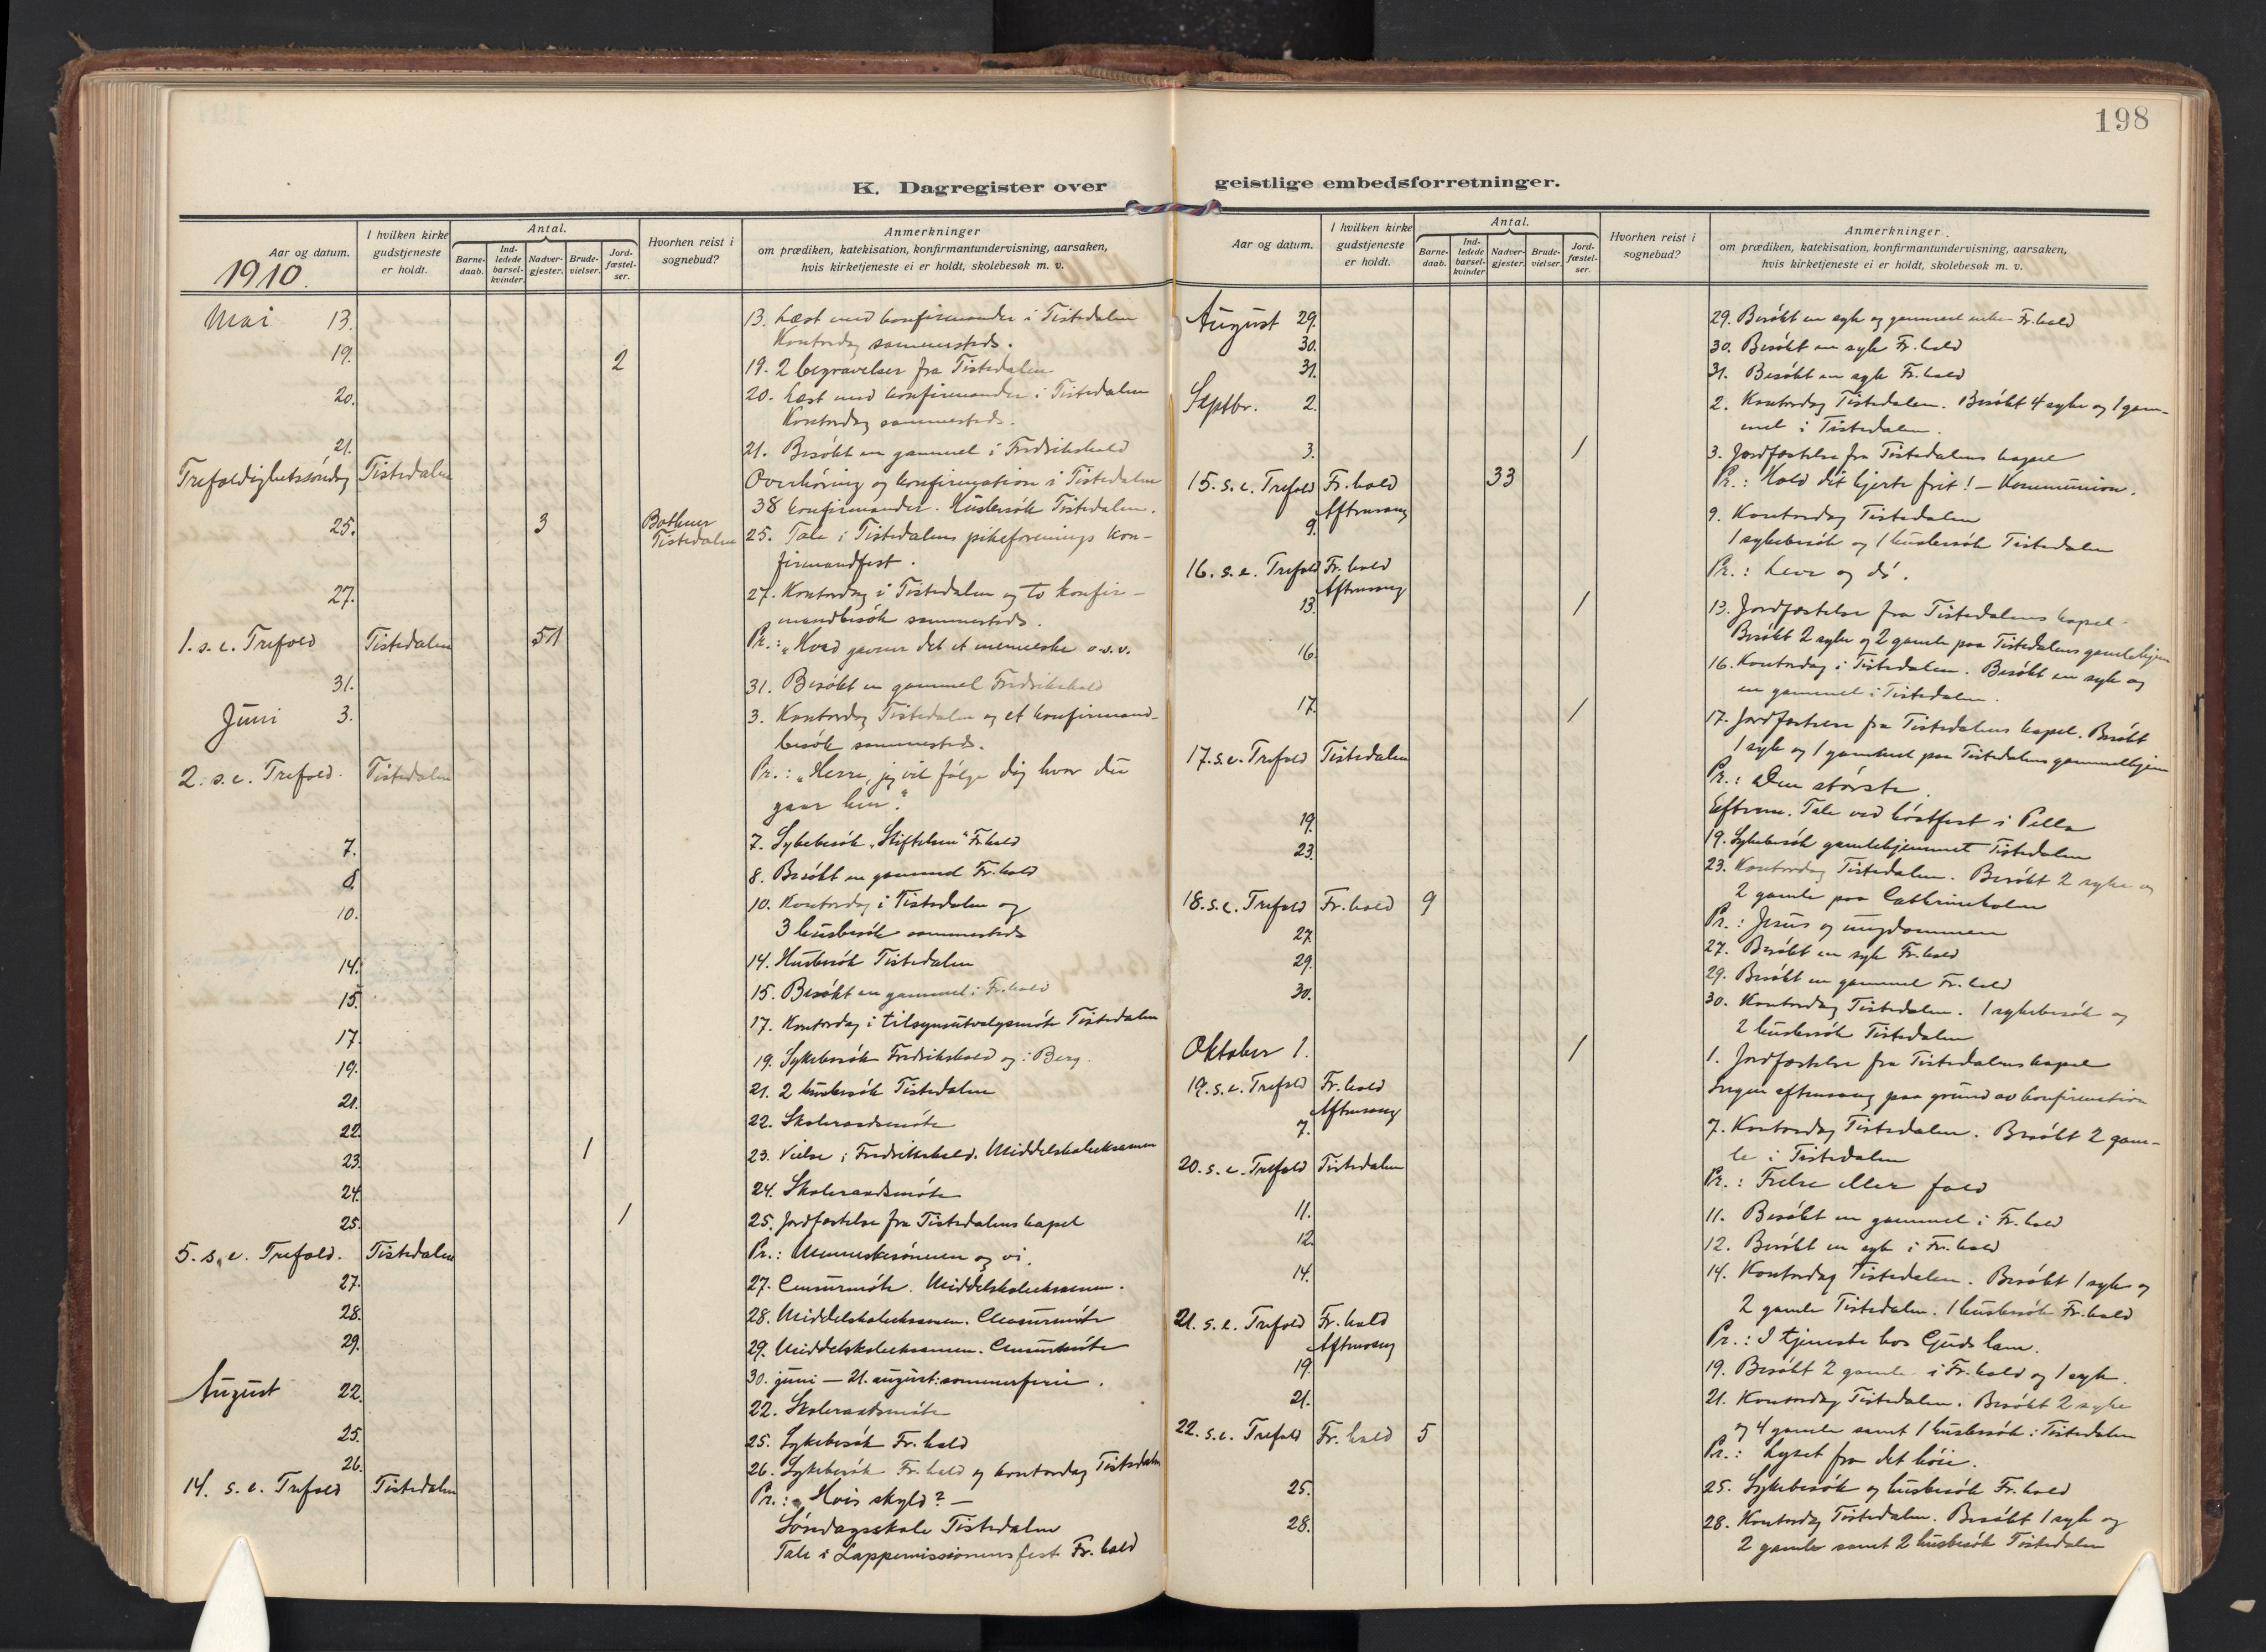 198
K. Dagregister over
Aar og datum.
I hvilken kirke gudstjeneste er holdt.
Antal.
Barnedaab.
Indledede barselkvinder.
Nadvergjester.
Brudevielser.
Jordfæstelser.
Hvorhen reist i sognebud?
Anmerkninger
om prædiken, katekisation, konfirmantundervisning, aarsaken,
hvis kirketjeneste ei er holdt, skolebesøk m. v.
1910.
Mai 13. 13. Læst med konfirmander i Tistedalen
Kontordag sammesteds.
19. 2 19. 2 begravelser fra Tistedalen
20. 20. Læst med konfirmander i Tistedalen
Kontordag sammesteds.
21. 21. Besökt en gammel i Fredrikshald
Trefoldighetssöndag Tistedalen Overhöring og konfirmation i Tistedalen
38 konfirmander. Husbesök Tistedalen.
25. 3 Bothner Tistedalen 25. Tale i Tistedalens pikeforenings kon-
firmandfest.
27. 27. Kontordag i Tistedalen og to konfir-
mandbesök sammesteds.
1. s. e. Trefold Tistedalen 51 Pr.: "Hvad gavner det et menneske o.s.v.
31. 31. Besökt en gammel Fredrikshald
Juni 3. 3. Kontordag Tistedalen og et konfirmand-
besök sammesteds.
2. s. e. Trefold. Tistedalen Pr.: "Herre, jeg vil følge dig hvor du
gaar hen."
7. 7. Sykebesök "Stiftelsen" Fr.hald
8. 8. Besökt en gammel Fr.hald
10. 10. Kontordag i Tistedalen og
3 husbesök sammesteds
14. 14. Husbesök Tistedalen
15. 15. Besökt en gammel i Fr.hald
17. 17. Kontordag i tilsynsutvalgsmöte Tistedalen
19. 19. Sykebesök Fredrikshald og i Berg.
21. 21. 2 husbesök Tistedalen
22. 22. Skoleraadsmöte
23. 1 23. Vielse i Fredrikshald. Middelskoleeksamen
24. 24. Skoleraadsmöte
25. 1 25. Jordfæstelse fra Tistedalens kapel
5. s. e. Trefold. Tistedalen Pr.: Menneskesönnen og vi.
27. 27. Censurmöte. Middelskoleeksamen.
28. 28. Middelskoleeksamen. Censurmöte
29. 29. Middelskoleeksamen. Censurmöte
30. juni — 21. august: sommerferie.
August 22. 22. Skoleraadsmöte
25. 25. Sykebesök Fr.hald
26. 26. Sykebesök Fr.hald og kontordag Tistedalen
14. s. e. Trefold Tistedalen Pr.: Hvis skyld? —
Söndagsskole Tistedalen
Tale i Lappemissionens fest Fr.hald
geistlige embedsforretninger.
Aar og datum.
I hvilken kirke gudstjeneste er holdt.
Antal.
Barnedaab.
Indledede barselkvinder
Nadvergjester.
Brudevielser.
Jordfæstelser.
Hvorhen reist i sognebud?
Anmerkninger.
om prædiken, katekisation, konfirmantundervisning, aarsaken,
hvis kirketjeneste ei er holdt, skolebesøk m. v.
August 29. 29. Besökt en syk og gammel Fr.hald
30. 30. Besökt en syk Fr.hald
31. 31. Besökt en syk Fr.hald
Septbr. 2. 2. Kontordag Tistedalen. Besökt 4 syke og 1 gam-
mel i Tistedalen.
3. 1 3. Jordfæstelse fra Tistedalens kapel
15. s. e. Trefold Fr.hald Aftensang 33 Pr.: Hold dit hjerte frit! — Kommunion.
9. 9. Kontordag Tistedalen
1 sykebesök og 1 husbesök Tistedalen
16. s. e. Trefold Fr.hald Aftensang Pr.: Leve og dö.
13. 1 13. Jordfæstelse fra Tistedalens kapel.
Besökt 2 syke og 2 gamle paa Tistedalens gamlehjem
16. 16. Kontordag i Tistedalen. Besökt en syk og
en gammel i Tistedalen.
17. 1 17. Jordfæstelse fra Tistedalens kapel. Besökt
1 syk og 1 gammel paa Tistedalens gammelhjem
17. s. e. Trefold Tistedalen Pr.: Den störste.
Efterm. Tale ved höstfest i Pella
19. 19. Sykebesök gamlehjemmet Tistedalen
23. 23. Kontordag Tistedalen. Besökt 2 syke og
2 gamle paa Cathrineholm
18. s. e. Trefold Fr.hald 9 Pr.: Jesus og ungdommen
27. 27. Besökt en syk Fr.hald
29. 29. Besökt en gammel Fr.hald
30. 30. Kontordag Tistedalen. 1 sykebesök og
2 husbesök Tistedalen
Oktober 1. 1 1. Jordfæstelse fra Tistedalens kapel
19. s. e. Trefold Fr.hald Aftensang Ingen aftensang paa grund av konfirmation
7. 7. Kontordag Tistedalen. Besökt 2 gam-
le i Tistedalen
20. s. e. Trefold Tistedalen Pr.: Frelse eller fald
11. 11. Besökt en gammel i Fr.hald
12. 12. Besökt en syk i Fr.hald
14. 14. Kontordag Tistedalen. Besökt 1 syk og
2 gamle Tistedalen. 1 husbesök Fr.hald
21. s. e. Trefold Fr.hald Aftensang Pr.: I tjeneste hos Guds lam.
19. 19. Besökt 2 gamle i Fr.hald og 1 syk.
21. 21. Kontordag Tistedalen. Besökt 2 syke
og 4 gamle samt 1 husbesök i Tistedalen
22. s. e. Trefold Fr.hald 5 Pr.: Lyset fra det höie.
25. 25. Sykebesök og husbesök Fr.hald
28. 28. Kontordag Tistedalen. Besökt 1 syk og
2 gamle samt 2 husbesök Tistedalen